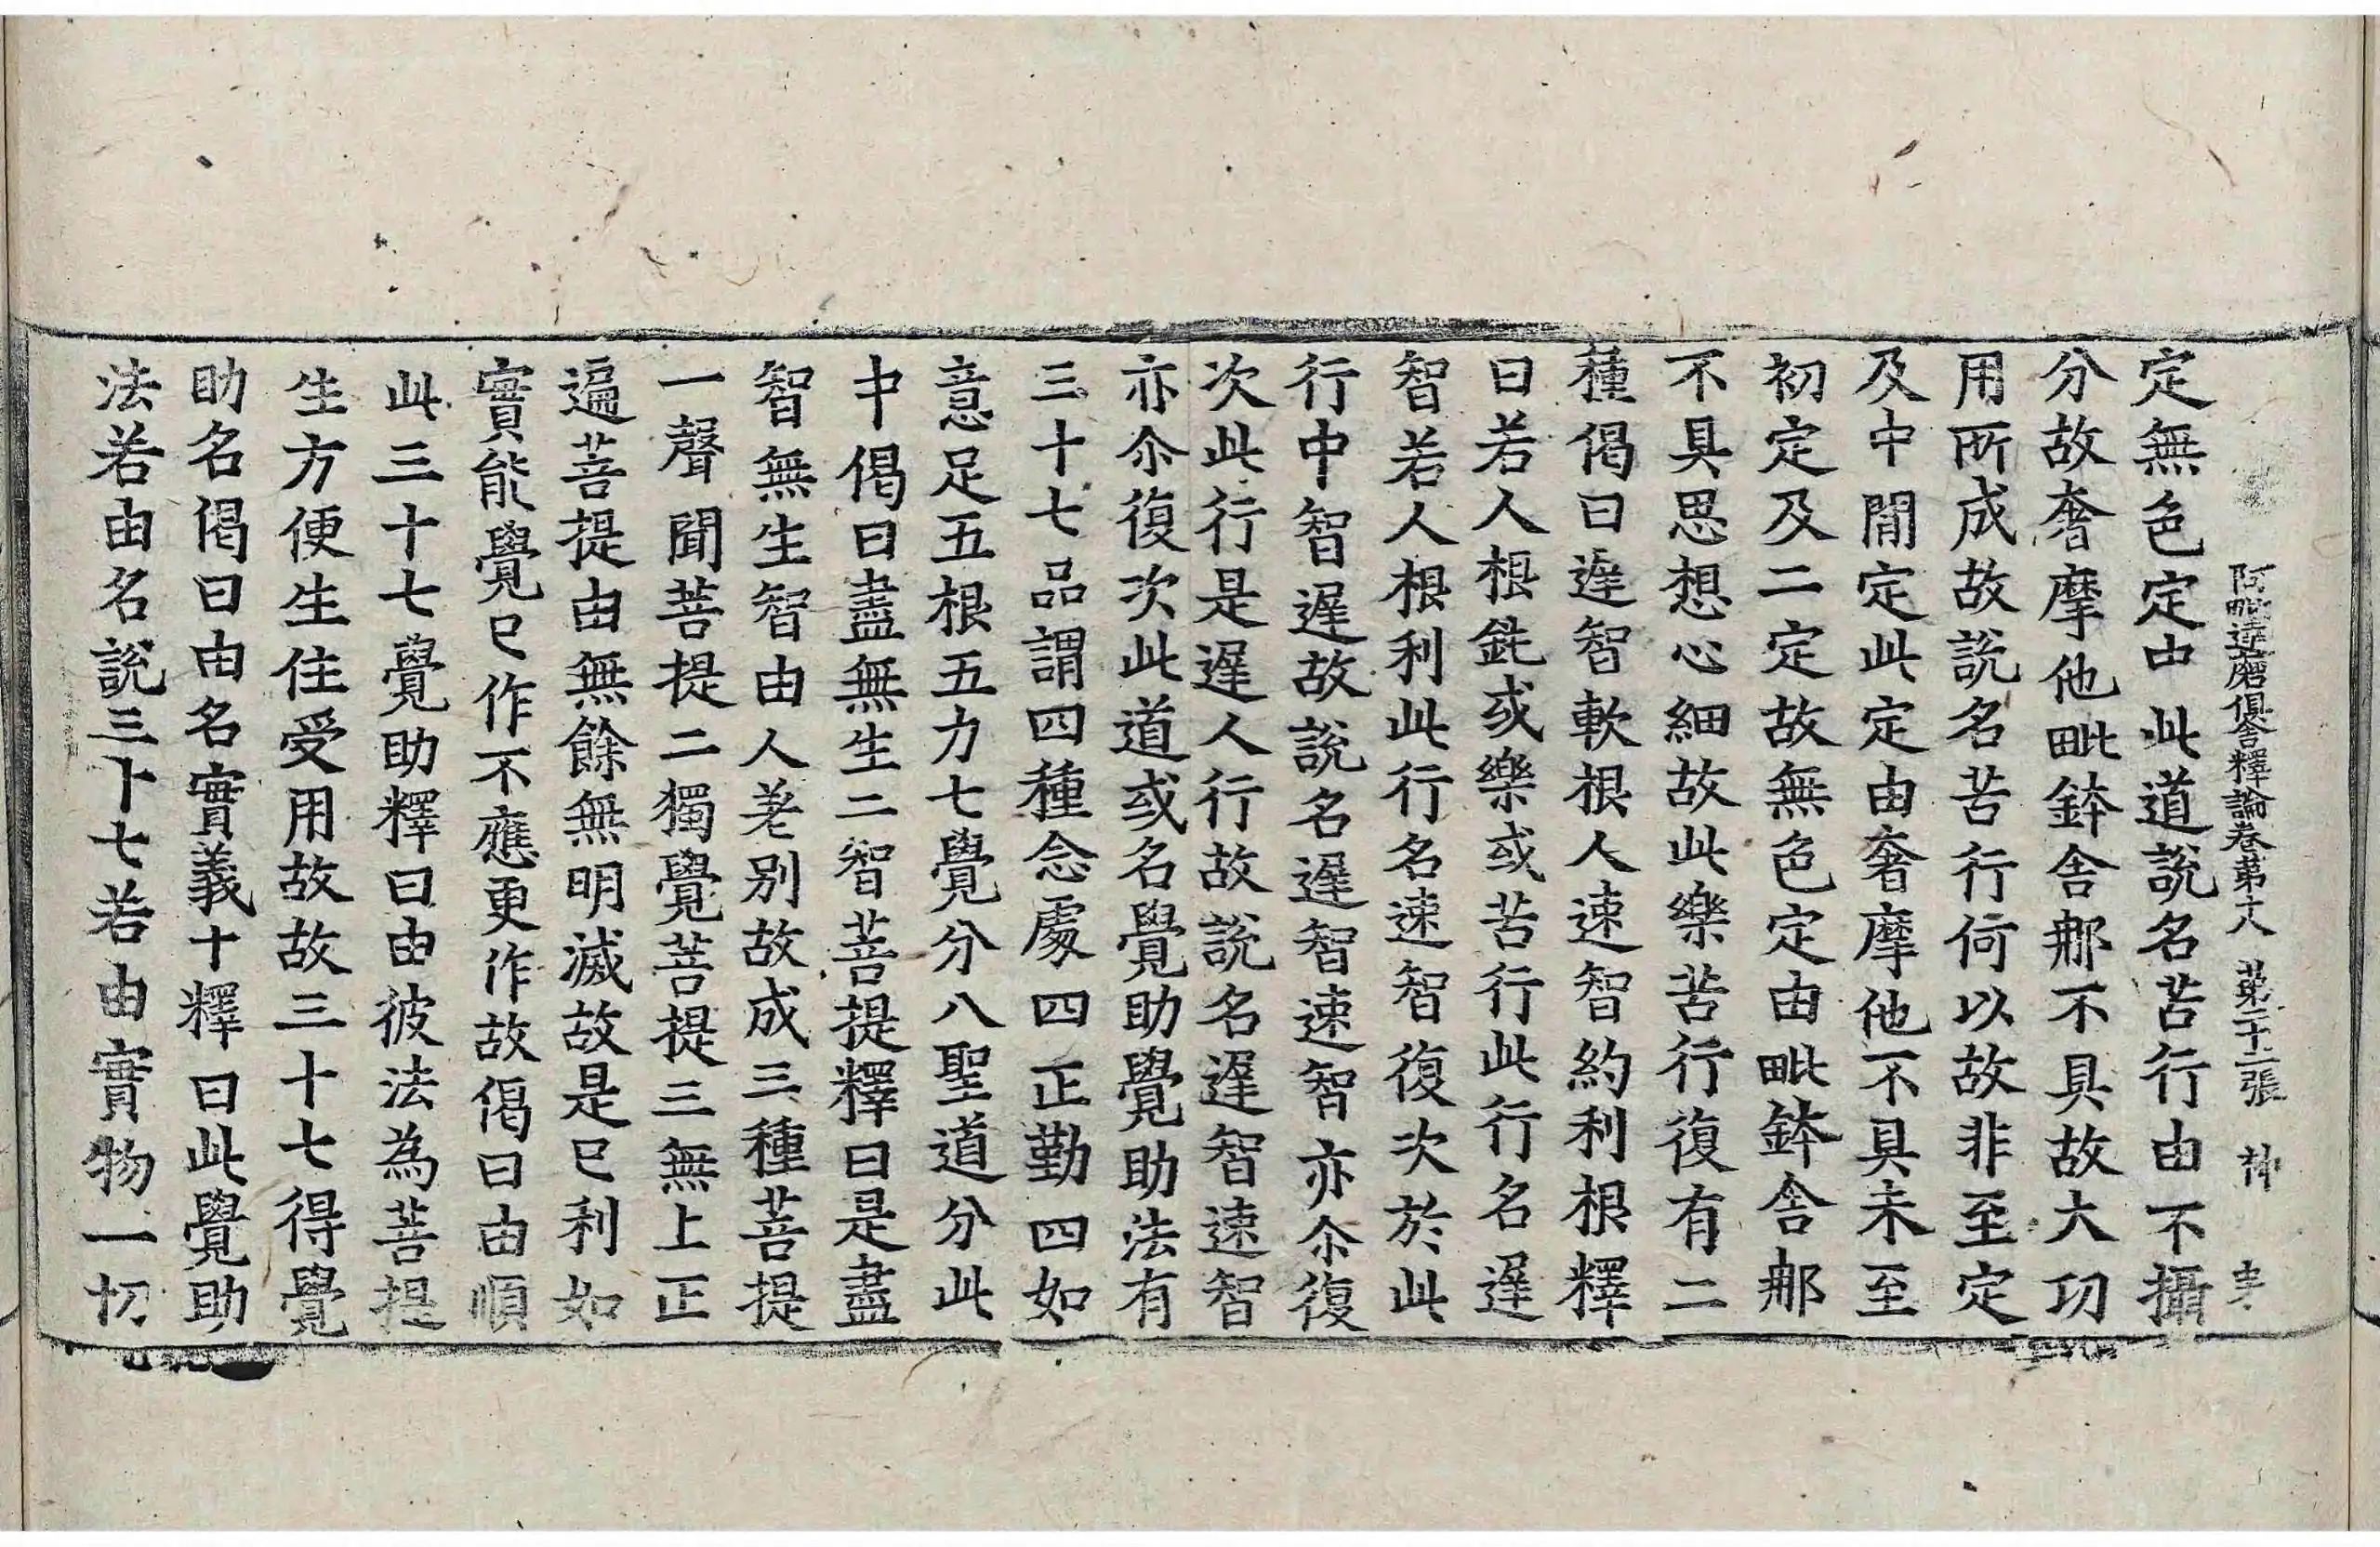 阿毗達磨俱舍釋論卷第十八 第二十二張
定無色定中此道說名苦行由不攝
分故奢摩他毗鉢舍那不具故大功
用所成故說名苦行何以故非至定
及中間定此定由奢摩他不具未至
初定及二定故無色定由毗鉢舍那
不具思想心細故此樂苦行復有二
種偈曰遲智軟根人速智約利根釋
曰若人根鈍或樂或苦行此行名遲
智若人根利此行名速智復次於此
行中智遲故說名遲智速智亦尒復
次此行是遲人行故說名遲智速智
亦尒復次此道或名覺助覺助法有
三十七品謂四種念處四正勤四如
意足五根五力七覺分八聖道分此
中偈曰盡無生二智菩提釋曰是盡
智無生智由人差別故成三種菩提
一聲聞菩提二獨覺菩提三無上正
遍菩提由無餘無明滅故是已利如
實能覺已作不應更作故偈曰由順
此三十七覺助釋曰由彼法為菩提
生方便生住受用故故三十七得覺
助名偈曰由名實義十釋曰此覺助
法若由名說三十七若由實物一切